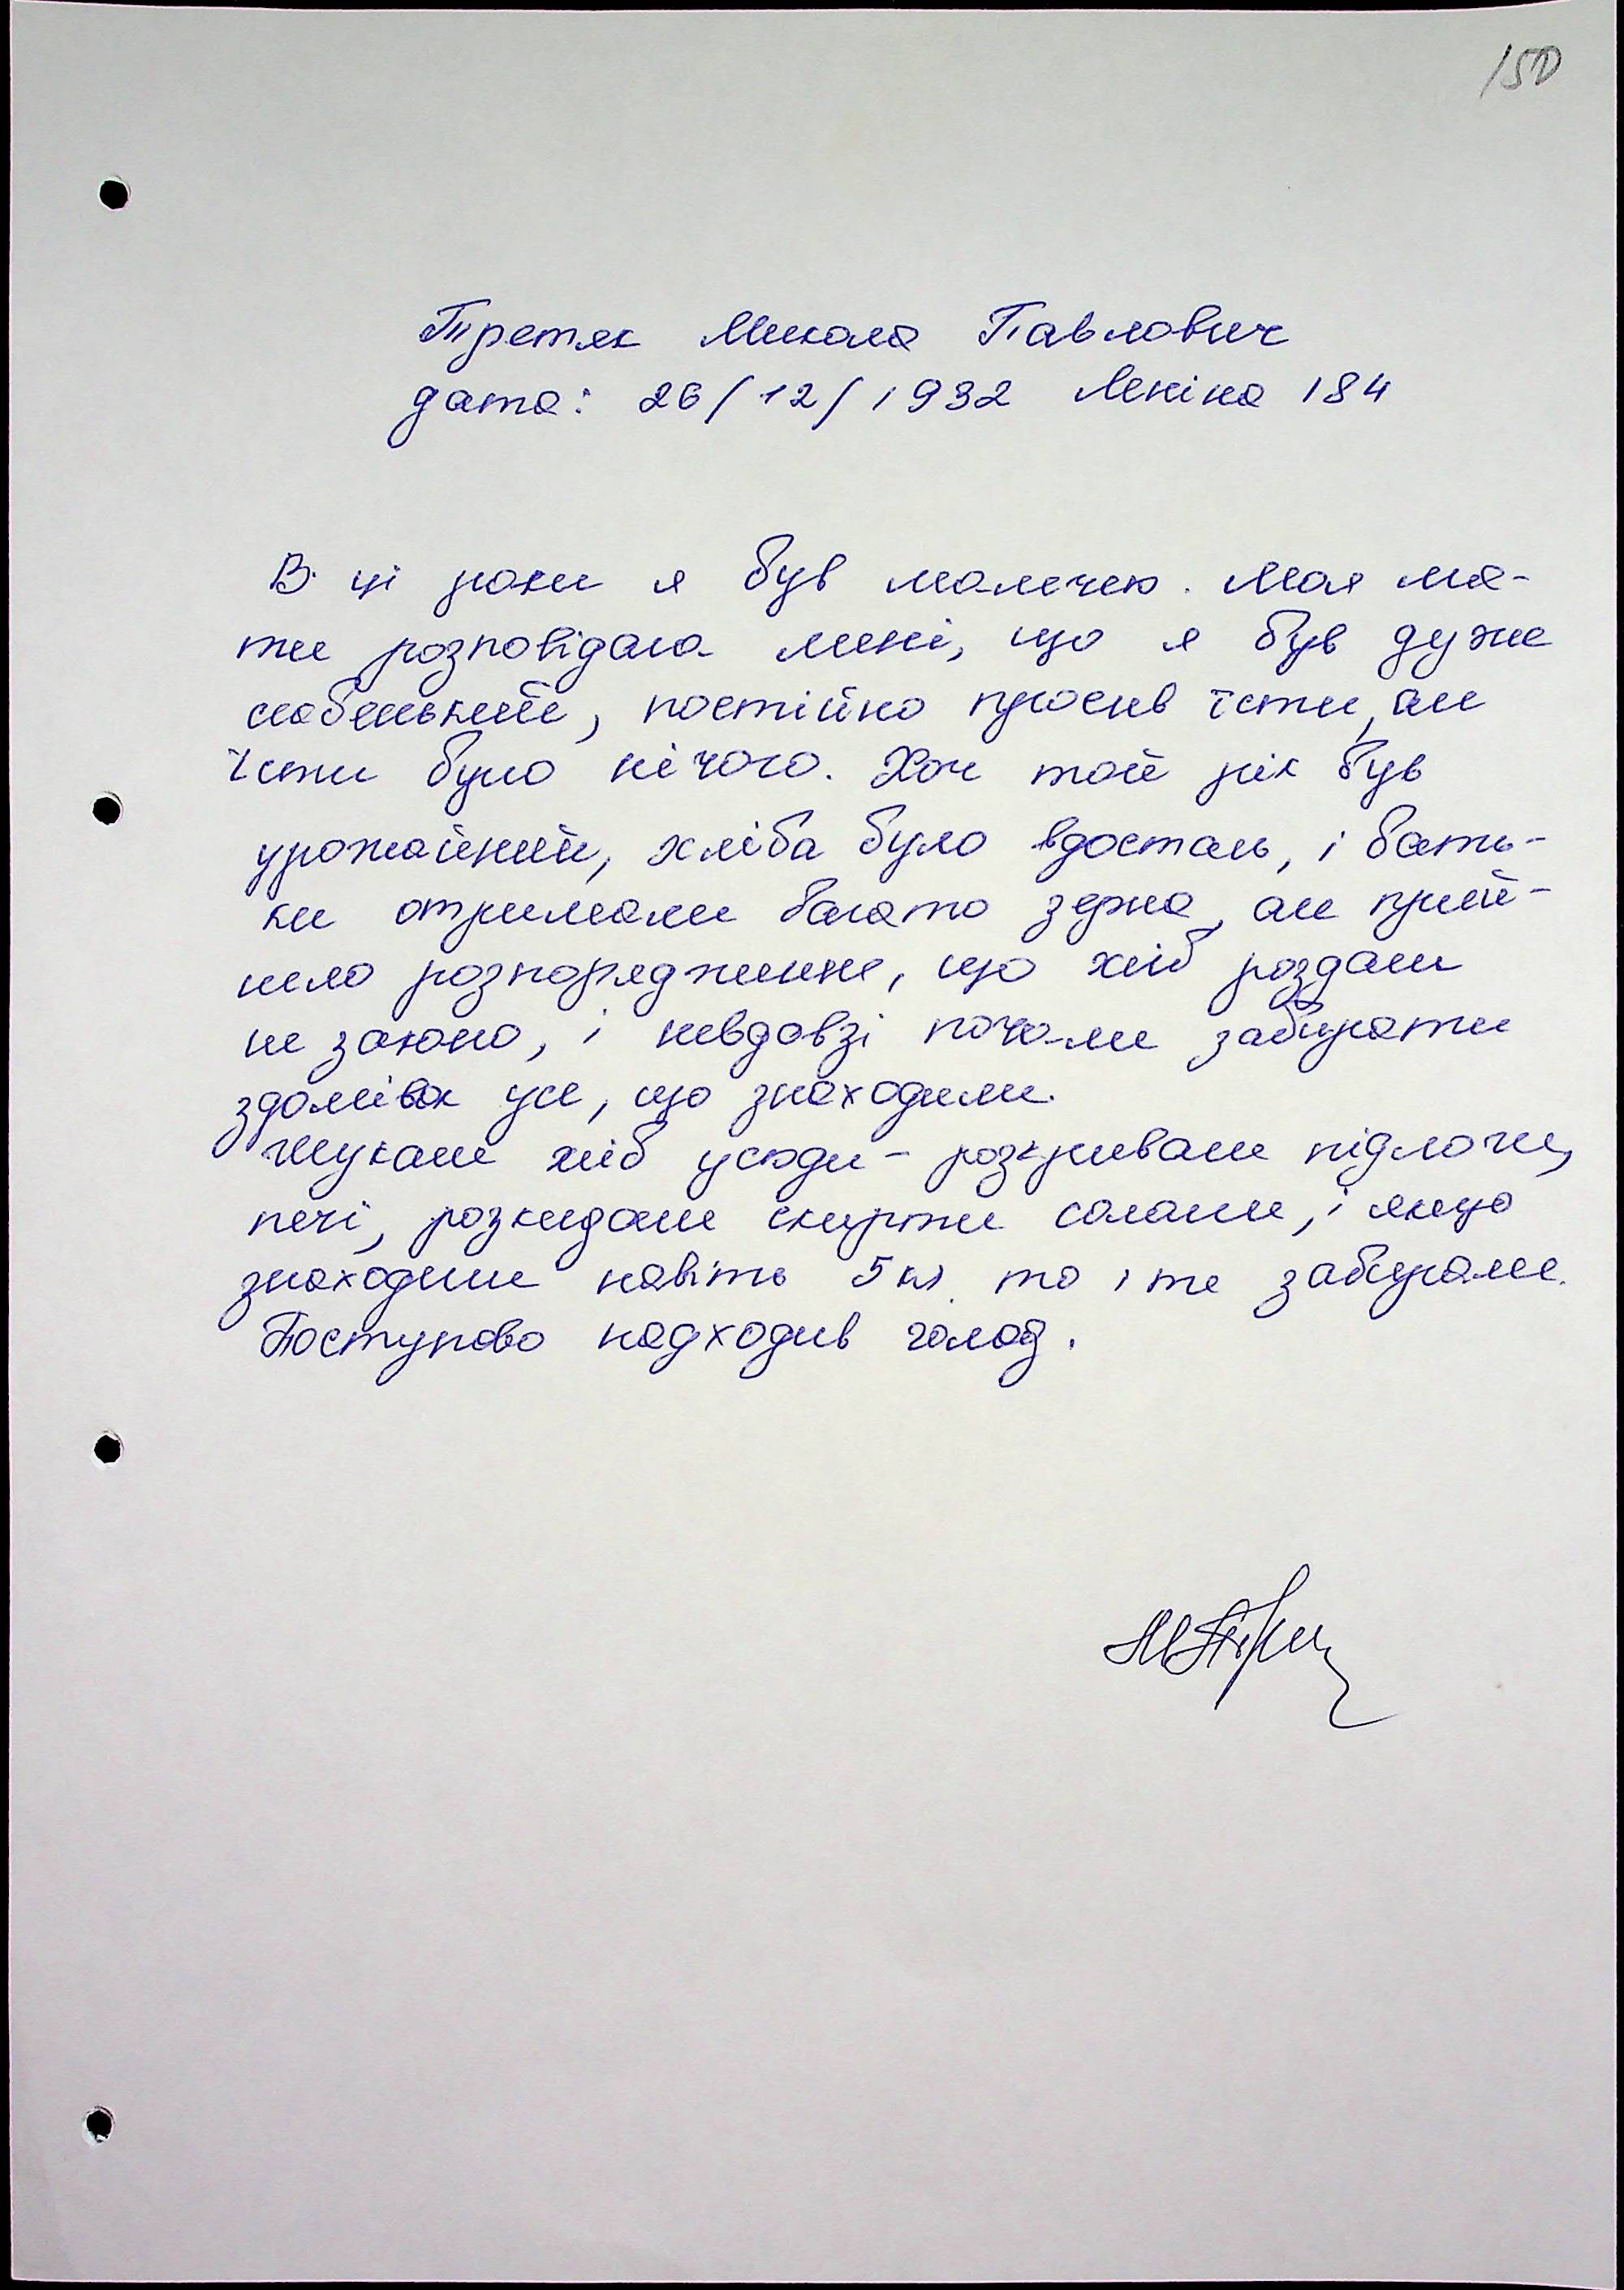 150
Третяк Микола Павлович
дата: 26/12/1932 Леніна 184
В ці роки я був малечею. Моя ма-
ти розповідала мені, що я був дуже
слабенький, постійно просив їсти, але
їсти було нічого. Хоч той рік був
урожайний, хліба було вдосталь, і бать-
ки отримали багато зерна, але прий-
шло розпорядження, що хліб роздали
не законо, і невдовзі почали забирати
здомівок усе, що знаходили.
Шукали хліб усюди - розкривали підлоги,
печі, розкидали скирти соломи, і якщо
знаходили навіть 5 кг то і те забирали.
Поступово надходив голод.